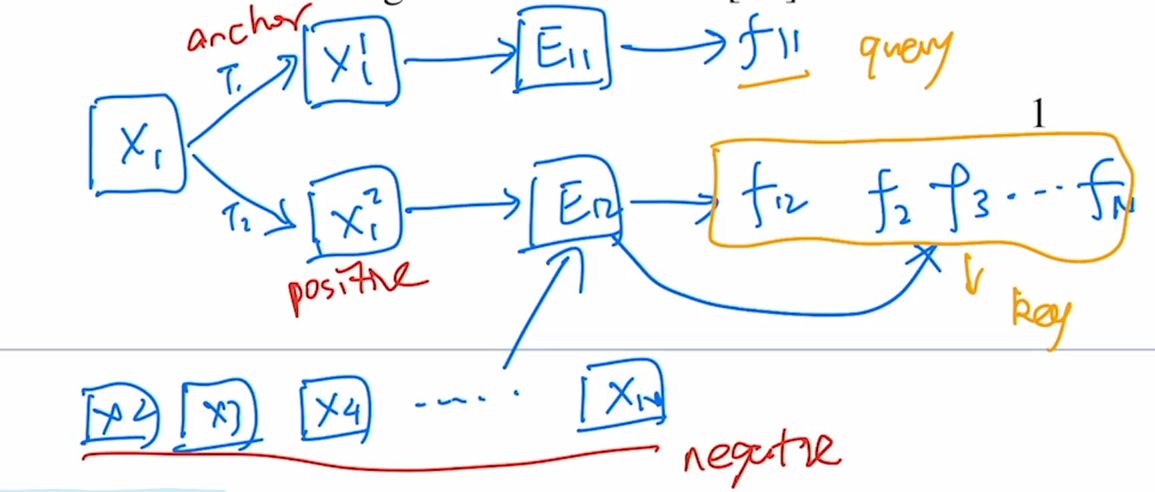 anchor
T₁
X₁¹
E₁₁
f₁₁
query
1
X₁
T₂
X₁²
E₁₂
f₁₂ f₂ f₃ ... fN
positive
key
X2 X3 X4 ...... XN
negative